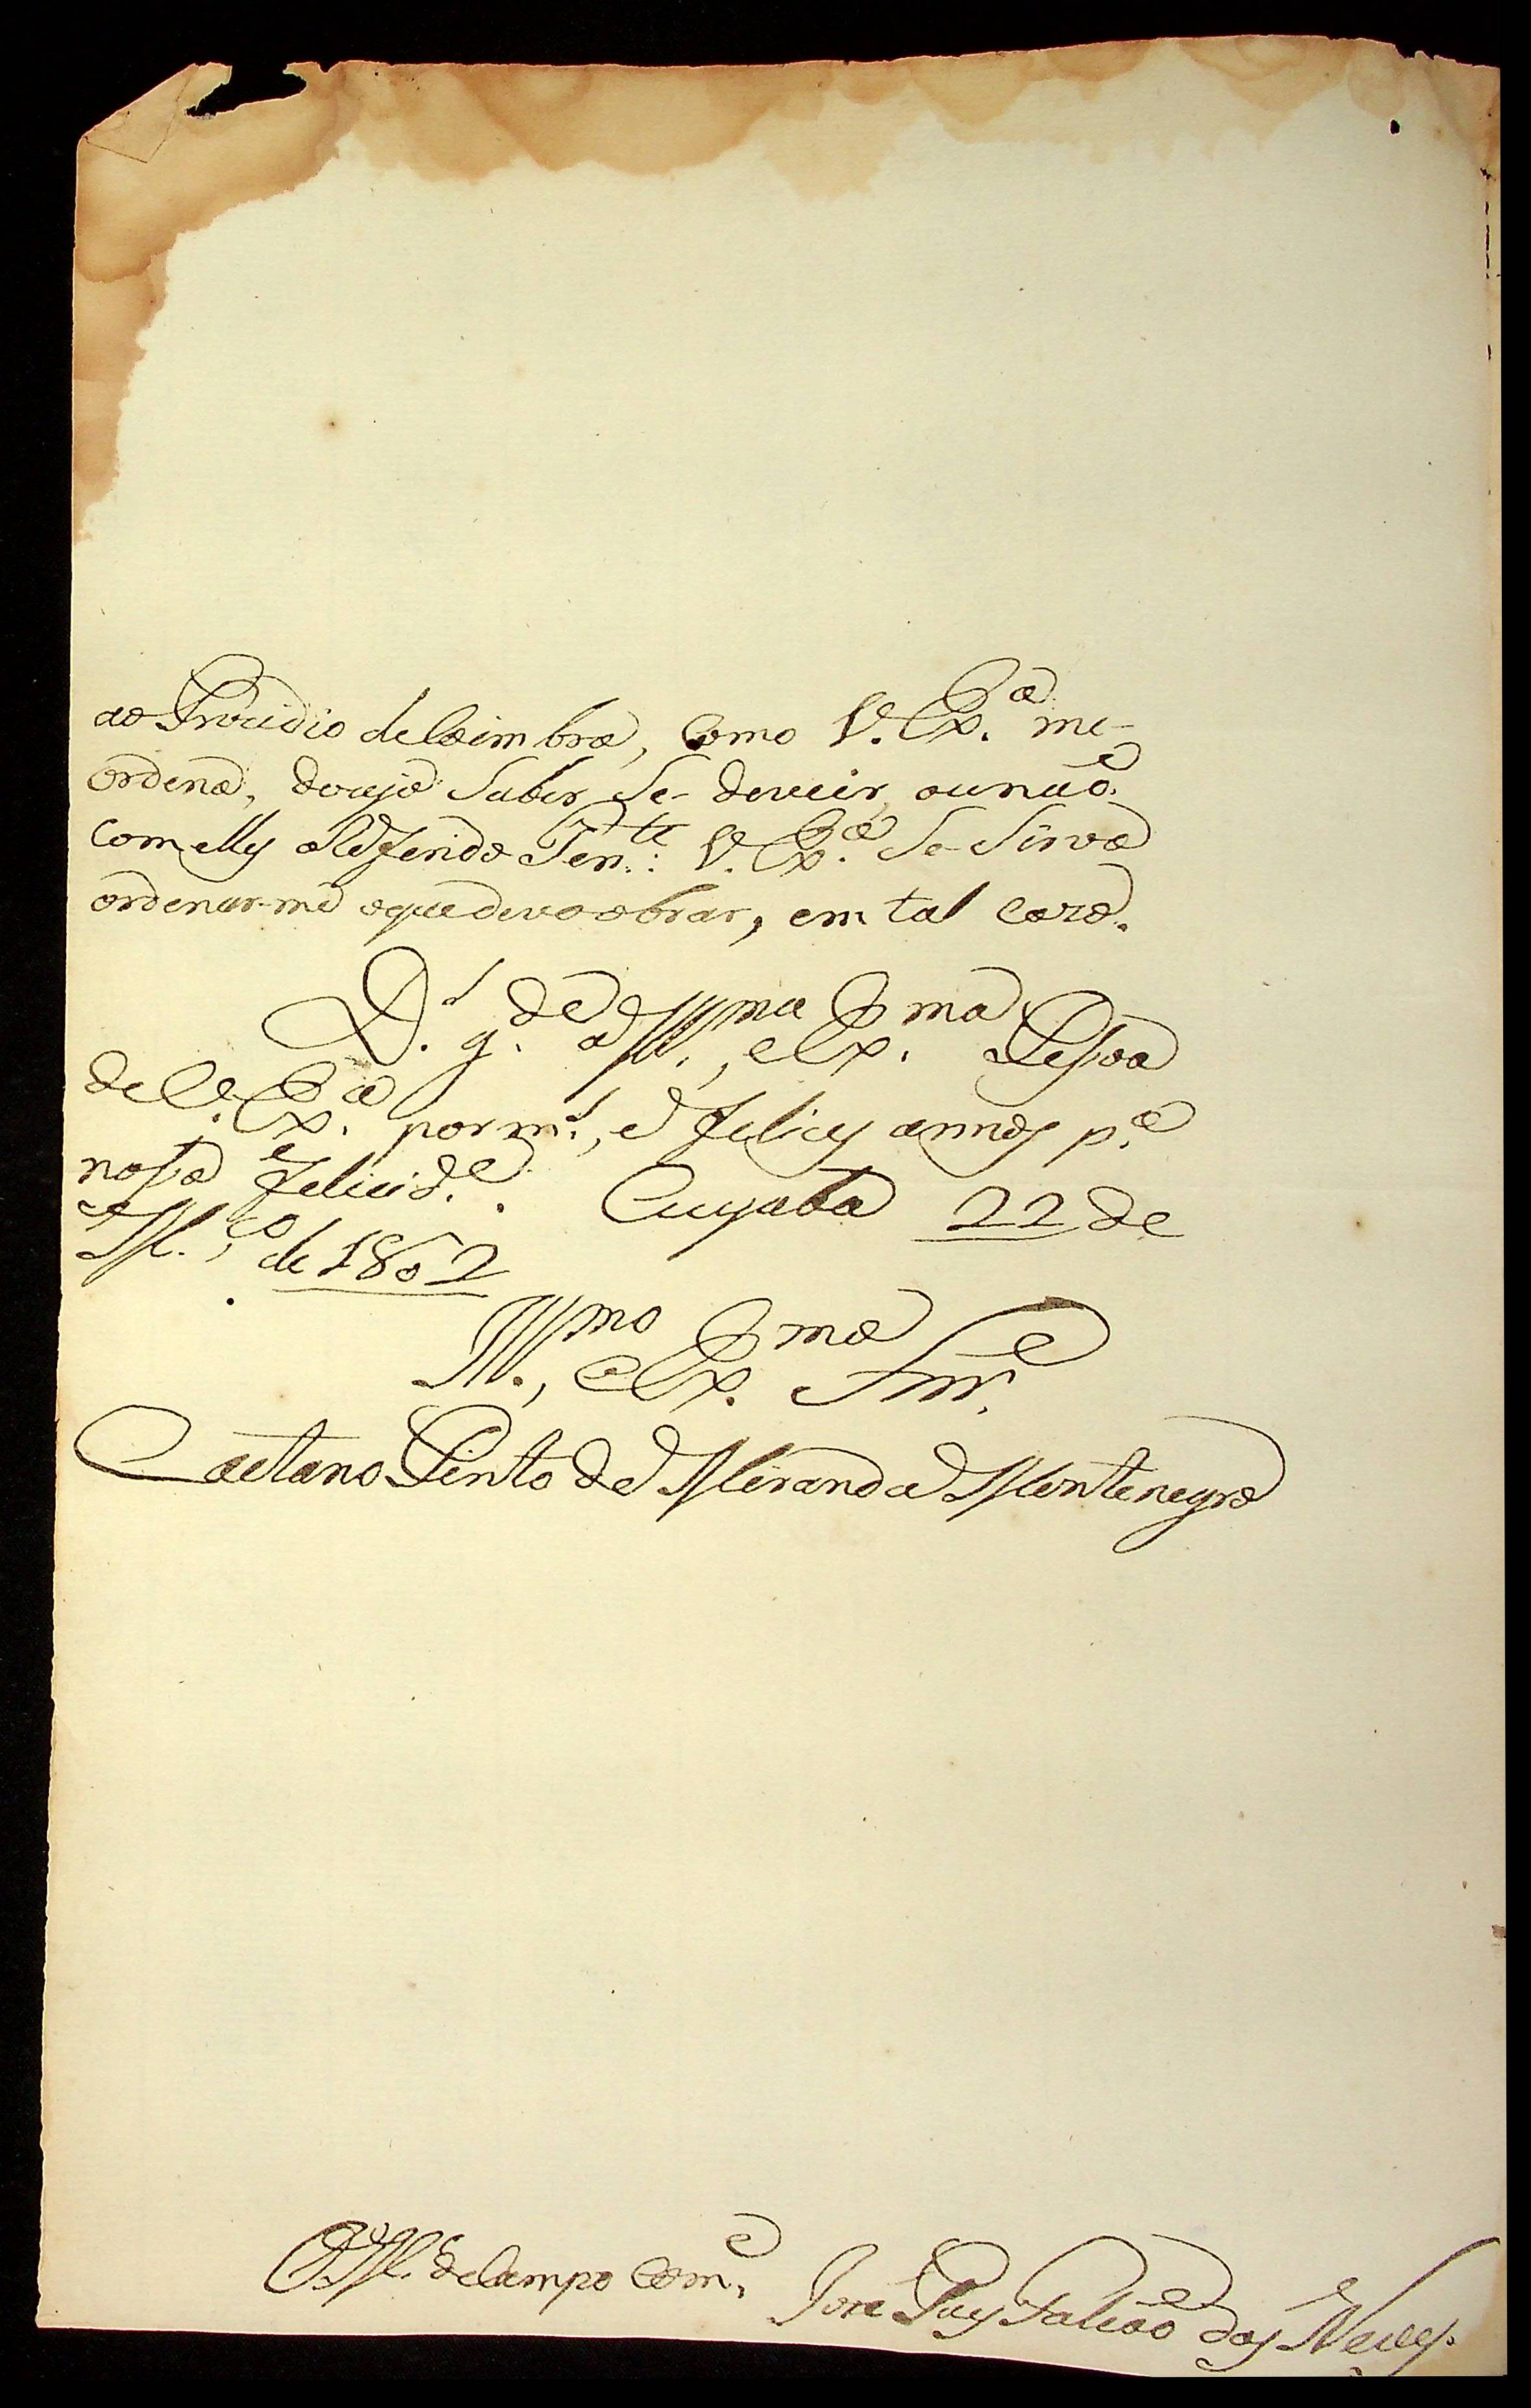 ao Prezidio de Coimbra, como V. Ex.ª me
ordena, dezejo saber se devem ir, ou não
com elles o Referido Ten.te: V. Ex.ª se sirva
ordenar-me o que devo obrar, em tal cazo.
D.s g.de a Ill.ma, e Ex.ma Pessoa
de V. Ex.ª por m.s, e felices annos p.ª
nossa felicid.e. Cuyabá 22 de
M.ço de 1802
Ill.mo, e Ex.mo Snr.
Caetano Pinto de Miranda Montenegro
O M.e de Campo Com.e Joze Paes Falcão das Neves